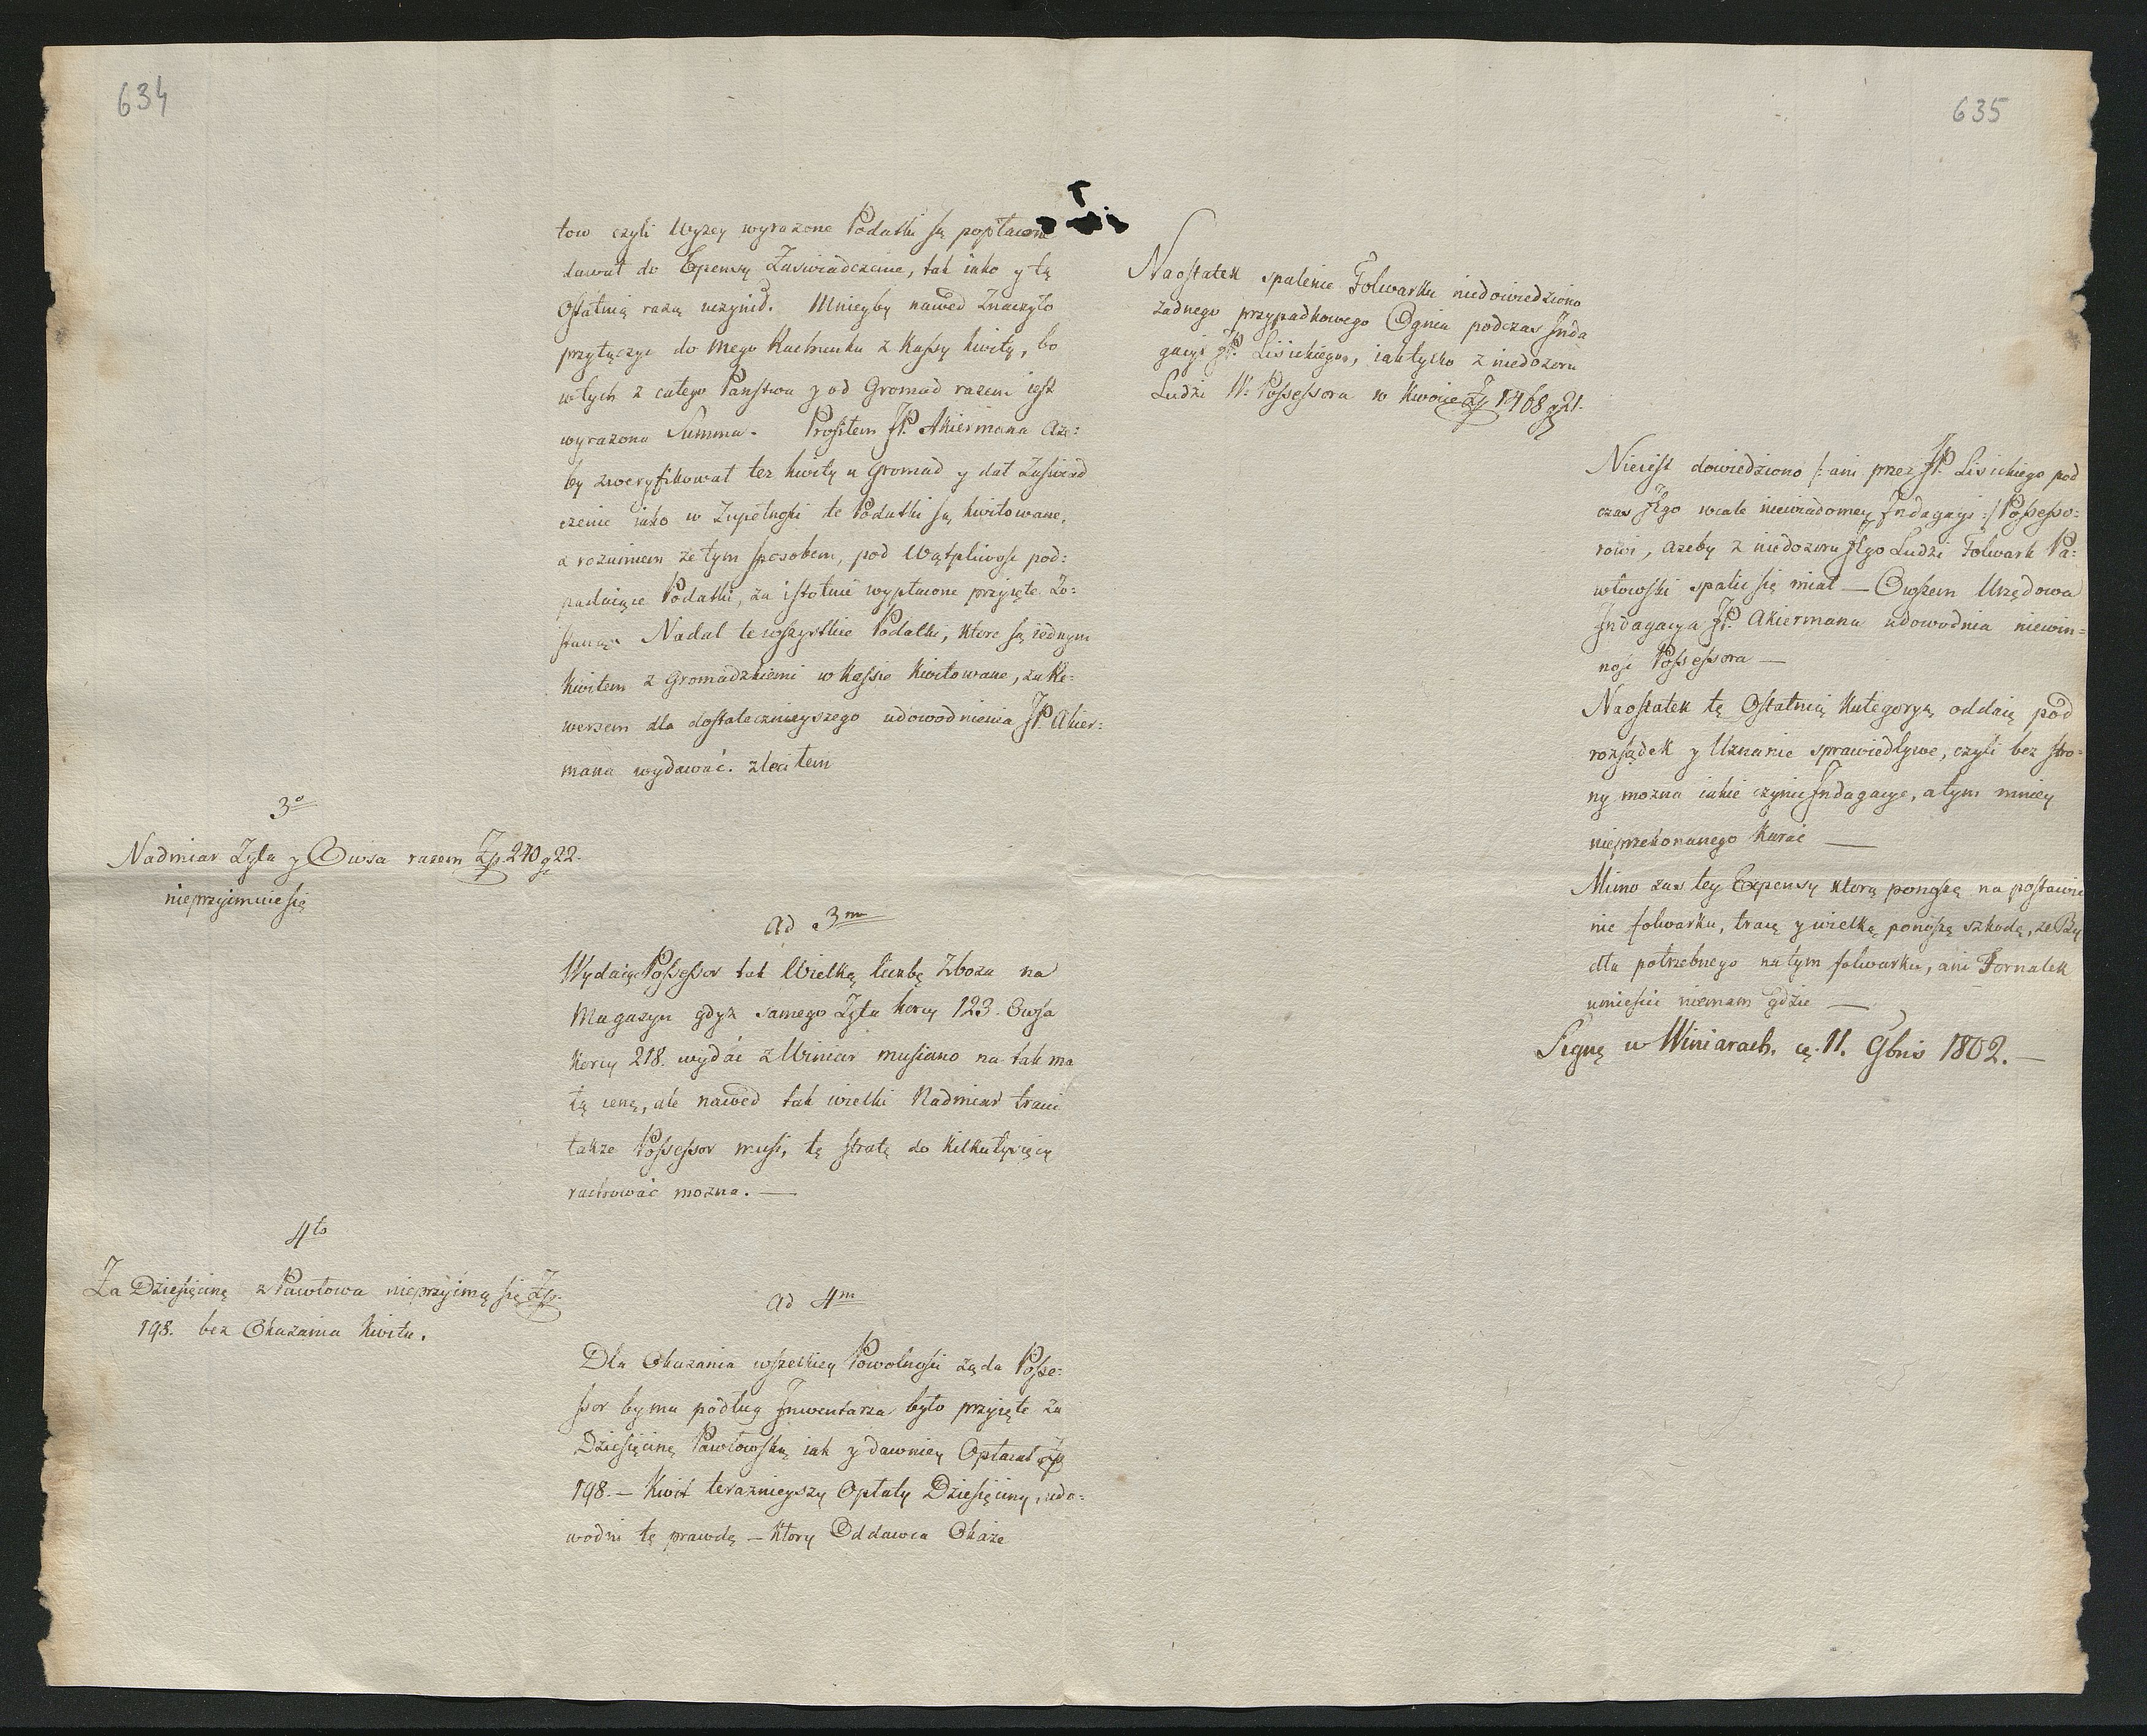 634
tow czyli Wyzey wyrazone Podatki są popłacone
dawał do Expensy Zaswiadczenie, tak iako y tę
Ostatnią razą uczynił. Mnieyby nawed Znaczyło
przyłączyc do mego Rachunku z Kassy kwity, bo
wtych z całego Panstwa y od Gromad razem iest
wyrazona Summa. Prosiłem JP. Akiermana Aze:
by zweryfikował tez kwity u Gromad y dał Zaswiad
czenie iako w Zupełnosci te Podatki są kwitowane,
a rozumiem ze tym sposobem, pod Wątpliwosc pod:
padaiące Podatki, za istotnie wypłacone przyięte Zo:
staną. Nadal te wszystkie Podatki, ktore są iednym
kwitem z Gromadzkiemi w Kassie kwitowane, za Re:
wersem dla dostatecznieyszego udowodnienia JP. Akier:
mana wydawać. zleciłem
3o
Nadmiar Zyta y Owsa razem Zp. 240 g 22.
nieprzyimuie się
ad 3m
Wydaiąc Possessor tak Wielką liczbę Zboza na
Magazyn gdyz samego Zyta korcy 123. Owsa
korcy 218. wydać z Winiar musiano na tak ma
łą cenę, ale nawed tak wielki Nadmiar traci
takze Possessor musi, tę stratę do kilkutysięcy
rachować mozna. —
4to
Za Dziesięcinę z Pawłowa nieprzyimą się Zp.
198. bez Okazania kwitu.
ad 4m
Dla Okazania wszelkiey Powolnosci ząda Posse:
ssor by mu podług Inwentarza było przyięte za
Dziesięcinę Pawłowską iak y dawniey Opłacał Zp
198. — Kwit teraznieyszy Opłaty Dziesięciny, udo:
wodni tę prawdę — ktory Oddawca Okaze
635
Naostatek spalenie Folwarku niedowiedziono
zadnego przypadkowego Ognia podczas Inda
gacyi JP. Lisickiego, iak tylko z niedozoru
Ludzi W: Possessora w kwocie Zp 1968 g 21.
Nieiest dowiedziono /: ani przez JP. Lisickiego pod
czas Jego wcale niewiadomey Indagacyi :/ Possesso:
rowi, azeby z niedozoru Jego Ludzi Folwark Pa:
włowski spalic się miał — Owszem Urzędowa
Indagacya JP. Akiermana udowodnia niewin=
nosc Possessora —
Naostatek tę Ostatnią Kategoryą oddaię pod
rozsądek y Uznanie sprawiedlywe, czyli bez stro=
ny mozna iakie czynic Indagacye, a tym mniey
nieprzekonanego Karać —
Mimo zas tey Expensy ktorą ponoszę na postawie
nie folwarku, tracę y wielką ponoszę szkodę, ze By
dła potrzebnego na tym folwarku, ani Fornalek
umiescic niemam gdzie —
Signę w Winiarach. 11. 9bris 1802. —